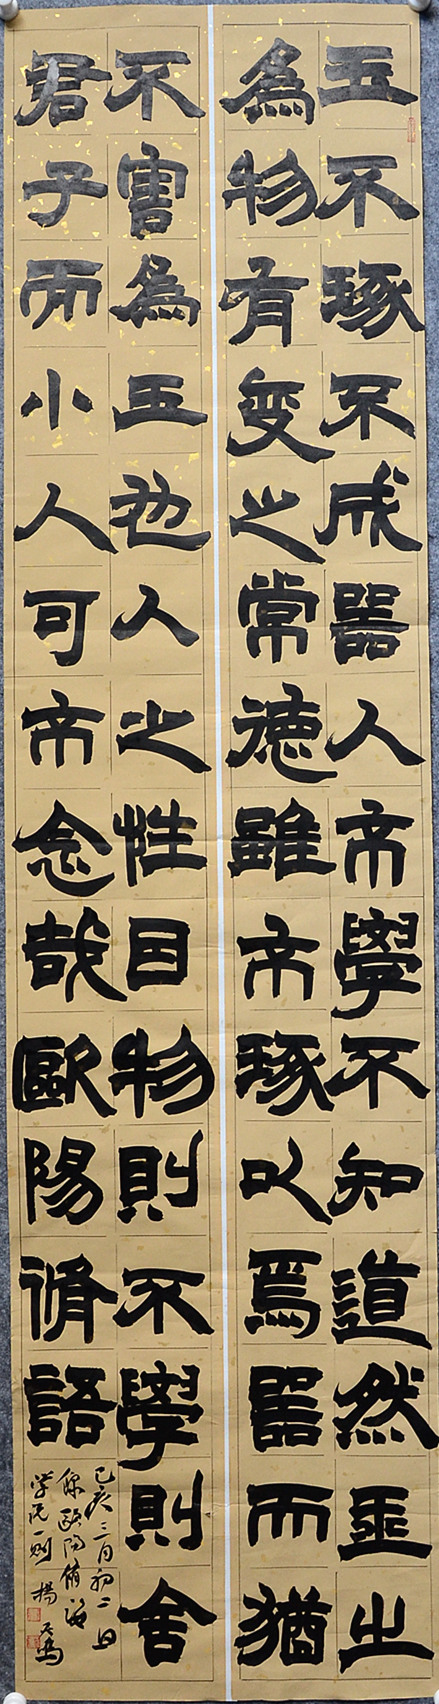 玉不琢不成器人不學不知道然玉之
為物有变之常德雖不琢以為器而猶
不害為玉也人之性因物則不學則舍
君子而小人可不念哉歐陽脩語
己亥三月初二日
歐陽脩誨
学说一則 楊